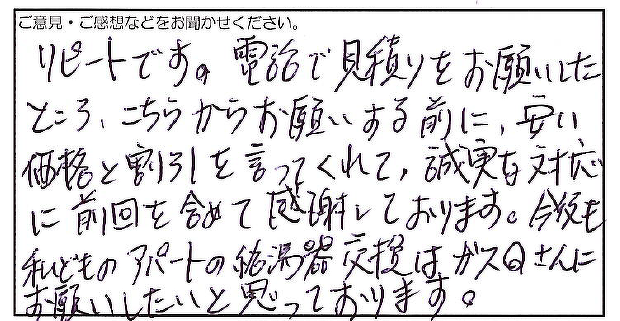 ご意見・ご感想などをお聞かせください。
リピートです。電話で見積りをお願いした
ところ、こちらからお願いする前に、安い
価格と割引を言ってくれて、誠実な対応
に前回を含めて感謝しております。今後も
私どものアパートの給湯器交換はガスQさんに
お願いしたいと思っております。